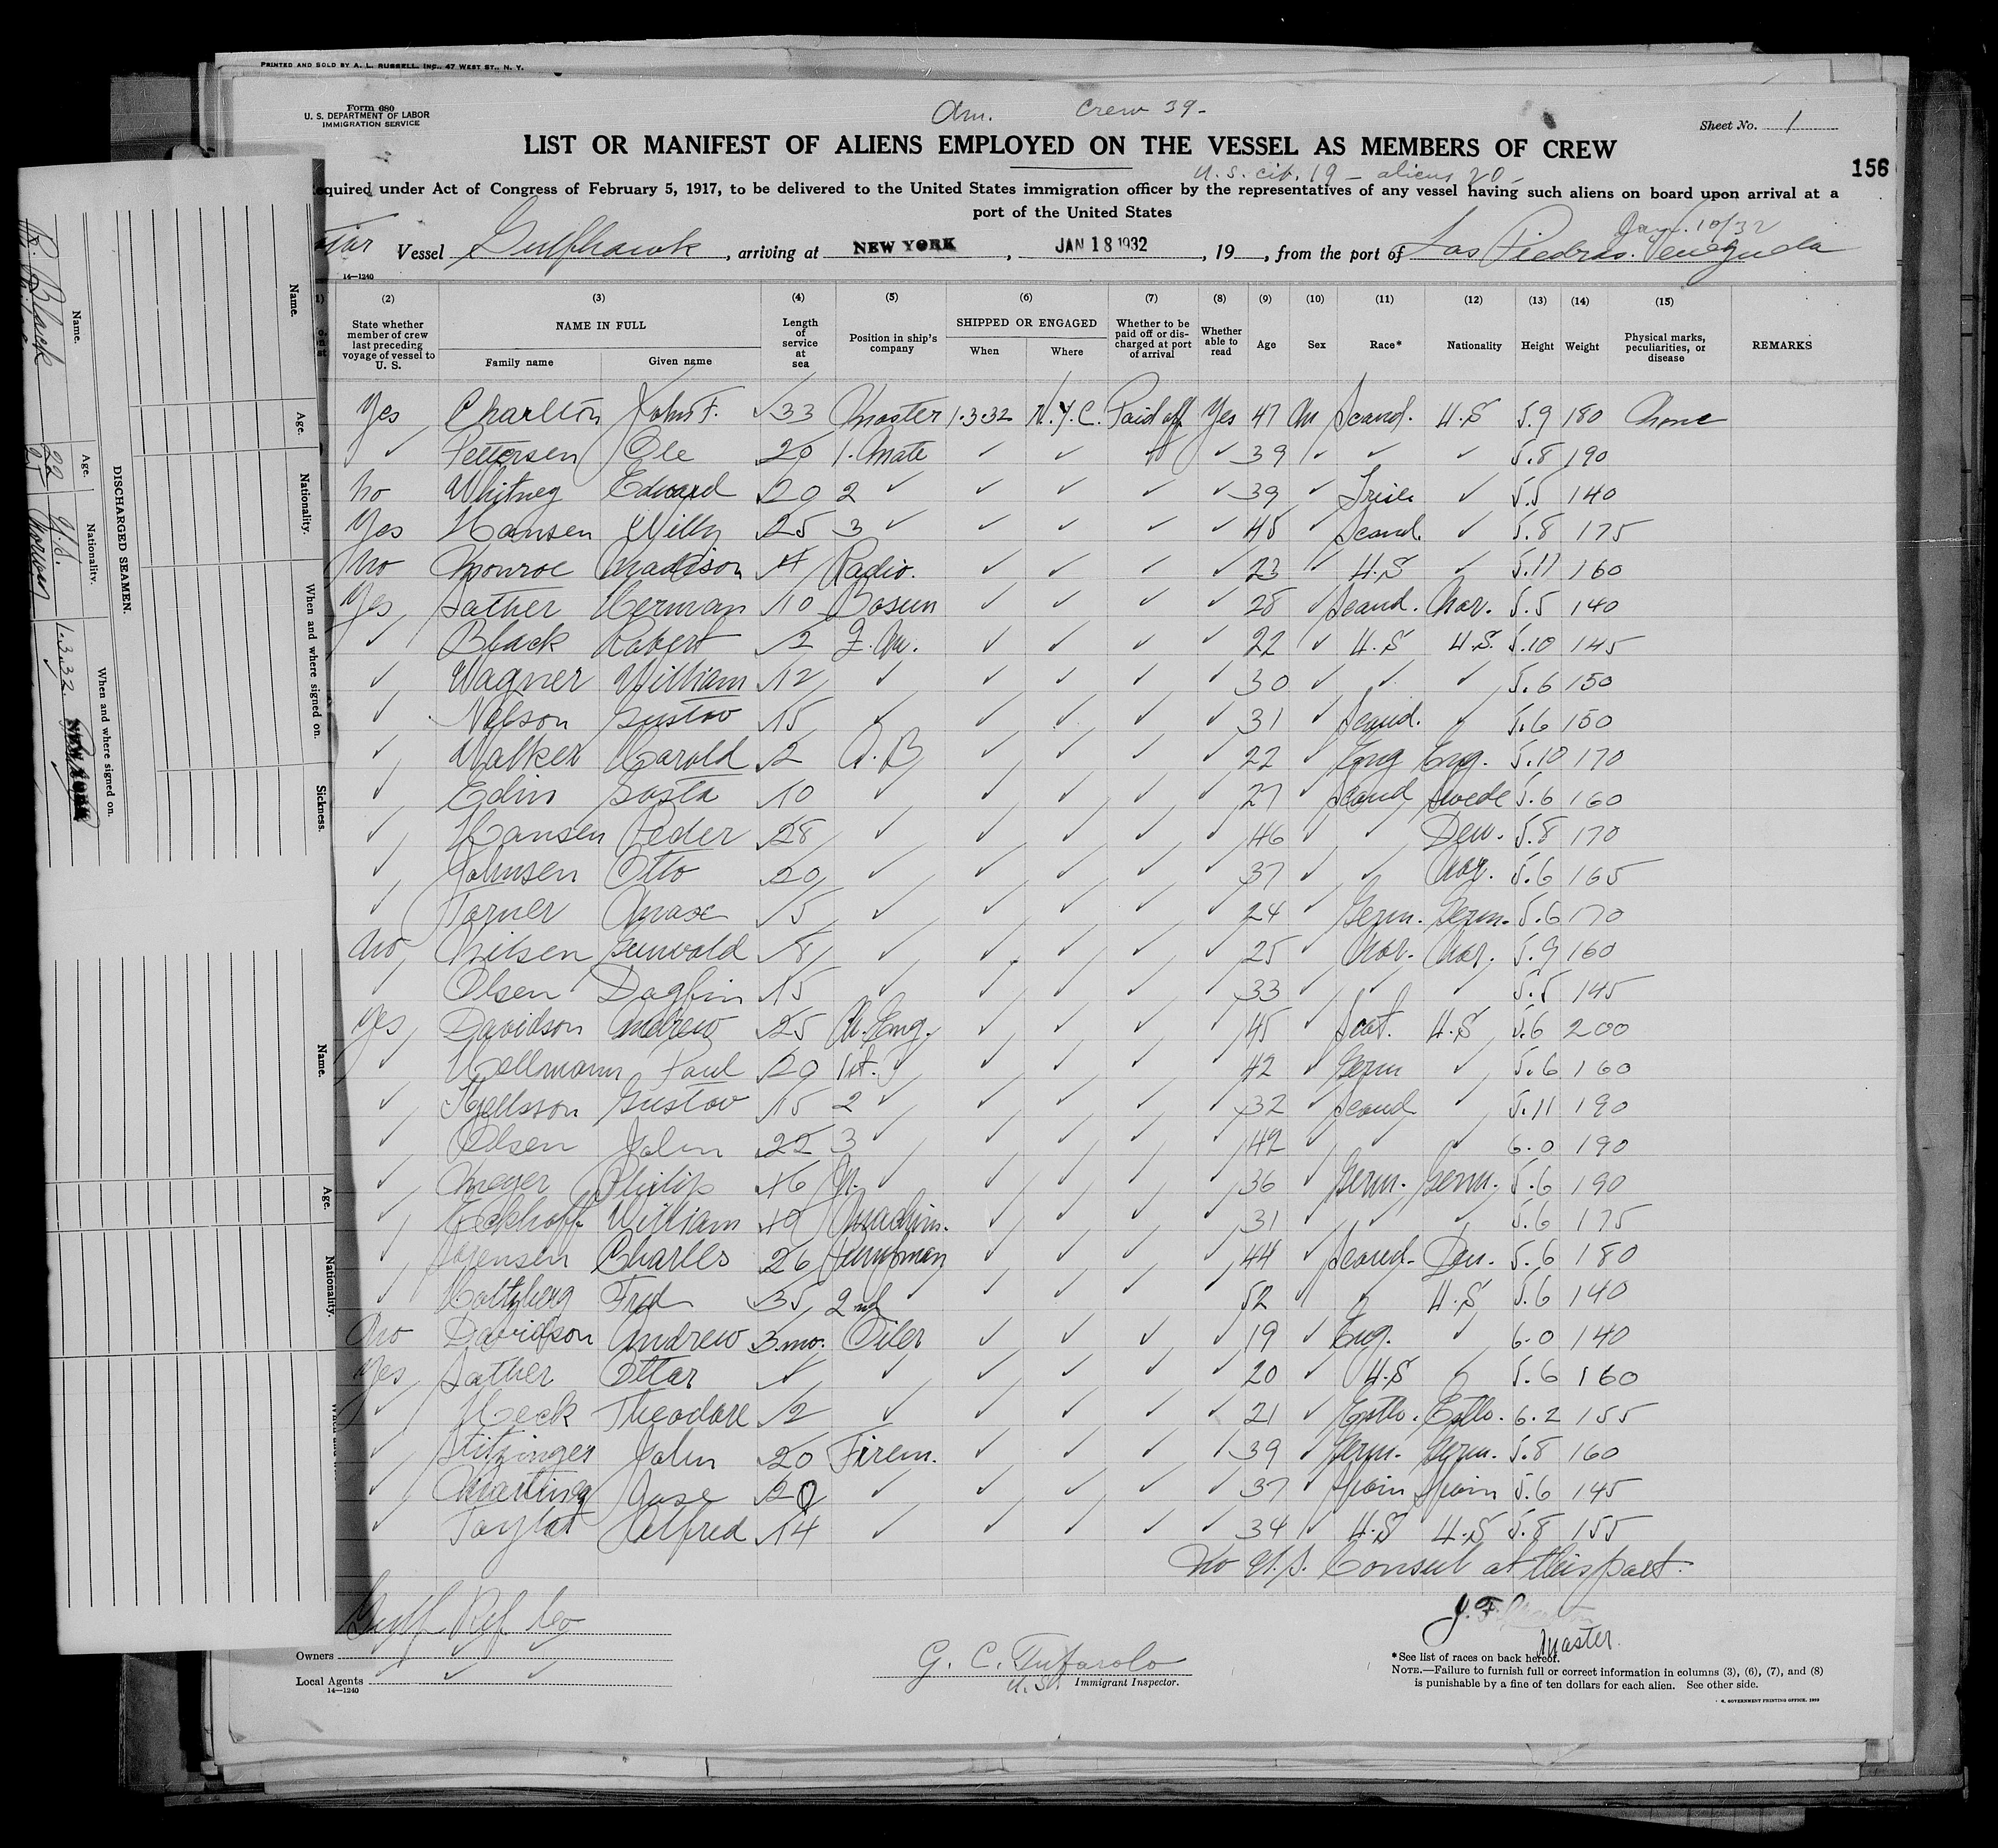 PRINTED AND SOLD BY A. L. RUSSELL, INC., 47 WEST ST., N. Y.
Form 680
U. S. DEPARTMENT OF LABOR
IMMIGRATION SERVICE
Am. Crew 39-
Sheet No. 1
LIST OR MANIFEST OF ALIENS EMPLOYED ON THE VESSEL AS MEMBERS OF CREW
U.S. cit. 19 - aliens 20
156
equired under Act of Congress of February 5, 1917, to be delivered to the United States immigration officer by the representatives of any vessel having such aliens on board upon arrival at a
port of the United States
Jan. 10/32
Vessel Gulfhawk, arriving at NEW YORK, JAN 18 1932, 19 , from the port of Las Piedras. Venezuela
14—1240
(2) (3) (4) (5) (6) (7) (8) (9) (10) (11) (12) (13) (14) (15)
State whether member of crew last preceding voyage of vessel to U. S. NAME IN FULL Family name Given name Length of service at sea Position in ship's company SHIPPED OR ENGAGED When Where Whether to be paid off or discharged at port of arrival Whether able to read Age Sex Race* Nationality Height Weight Physical marks, peculiarities, or disease REMARKS
Yes Charlton John F. ✓33 Master 1-3-32 N.Y.C. Paid off Yes 47 M Scand. U.S 5.9 180 None
✓ Pettersen Ole 20 1. Mate ✓ ✓ ✓ ✓ 39 ✓ ✓ ✓ 5.8 190
No Whitney Edward 20 2 ✓ ✓ ✓ ✓ ✓ 39 ✓ Irish ✓ 5.5 140
Yes Hansen Willy 25 3 ✓ ✓ ✓ ✓ ✓ 45 ✓ Scand. ✓ 5.8 175
No Monroe Madison 4 Radio. ✓ ✓ ✓ ✓ 23 ✓ U.S ✓ 5.11 160
Yes Sather Herman 10 Bosun ✓ ✓ ✓ ✓ 28 ✓ Scand. Nor. 5.5 140
✓ Black Robert 2 Q.M. ✓ ✓ ✓ ✓ 22 ✓ U.S U.S. 5.10 145
✓ Wagner William 12 ✓ ✓ ✓ ✓ ✓ 30 ✓ ✓ ✓ 5.6 150
✓ Nelson Gustav 15 ✓ ✓ ✓ ✓ ✓ 31 ✓ Scand. ✓ 5.6 150
✓ Walker Harold 2 A.B ✓ ✓ ✓ ✓ 22 ✓ Eng Eng. 5.10 170
✓ Edin Gosta 10 ✓ ✓ ✓ ✓ ✓ 27 ✓ Scand Swede 5.6 160
✓ Hansen Peder 28 ✓ ✓ ✓ ✓ ✓ 46 ✓ ✓ Den. 5.8 170
✓ Johnsen Otto 20 ✓ ✓ ✓ ✓ ✓ 37 ✓ ✓ Nor. 5.6 165
✓ Torner Max 5 ✓ ✓ ✓ ✓ ✓ 24 ✓ Germ. Germ. 5.6 170
No Nilsen Gunvald 8 ✓ ✓ ✓ ✓ ✓ 25 ✓ Nor. Nor. 5.9 160
✓ Olsen Dagfin 15 ✓ ✓ ✓ ✓ ✓ 33 ✓ ✓ ✓ 5.5 145
Yes Davidson Andrew 25 Ch. Eng. ✓ ✓ ✓ ✓ 45 ✓ Scot. U.S 5.6 200
✓ Hellmann Paul 20 1st. ✓ ✓ ✓ ✓ ✓ 42 ✓ Germ ✓ 5.6 160
✓ Kjellsson Gustov 15 2 ✓ ✓ ✓ ✓ ✓ 32 ✓ Scand ✓ 5.11 190
✓ Olsen John 22 3 ✓ ✓ ✓ ✓ ✓ 42 ✓ ✓ ✓ 6.0 190
✓ Meyer Philip 16 Jr. ✓ ✓ ✓ ✓ ✓ 36 ✓ Germ. Germ. 5.6 190
✓ Eckhoff William 10 Machin. ✓ ✓ ✓ ✓ 31 ✓ ✓ ✓ 5.6 175
✓ Sorensen Charles 26 Pumpman ✓ ✓ ✓ ✓ 44 ✓ Scand. Den. 5.6 180
✓ Fred 35 2nd ✓ ✓ ✓ ✓ ✓ 52 ✓ ✓ U.S 5.6 140
No Davidson Andrew 3.mo. Oiler ✓ ✓ ✓ ✓ 19 ✓ Eng. ✓ 6.0 140
Yes Sather Ottar ✓ ✓ ✓ ✓ ✓ ✓ 20 ✓ U.S ✓ 5.6 160
✓ Heck Theodore 2 ✓ ✓ ✓ ✓ ✓ 21 ✓ Estho. Estho. 6.2 155
✓ Stitzinger John 20 Firem. ✓ ✓ ✓ ✓ 39 ✓ Germ. Germ. 5.8 160
✓ Martinez Jose 20 ✓ ✓ ✓ ✓ ✓ 37 ✓ Spain Spain 5.6 145
✓ Taylor Alfred 14 ✓ ✓ ✓ ✓ ✓ 34 ✓ U.S U.S 5.8 155
No U.S. Consul at this port.
Gulf Ref. Co
J. F.
Master.
Owners
Local Agents ✓ ✓ ✓
14—1240
G. C. Tufarolo
U.S. Immigrant Inspector.
*See list of races on back hereof.
NOTE.—Failure to furnish full or correct information in columns (3), (6), (7), and (8)
is punishable by a fine of ten dollars for each alien. See other side.
DISCHARGED SEAMEN.
Name. Age. Nationality. When and where signed on.
R. Black 22 U.S. 1-3-32. NEW YORK
25
Name. Age. Nationality. When and where signed on. Sickness.
Name. Age. Nationality.